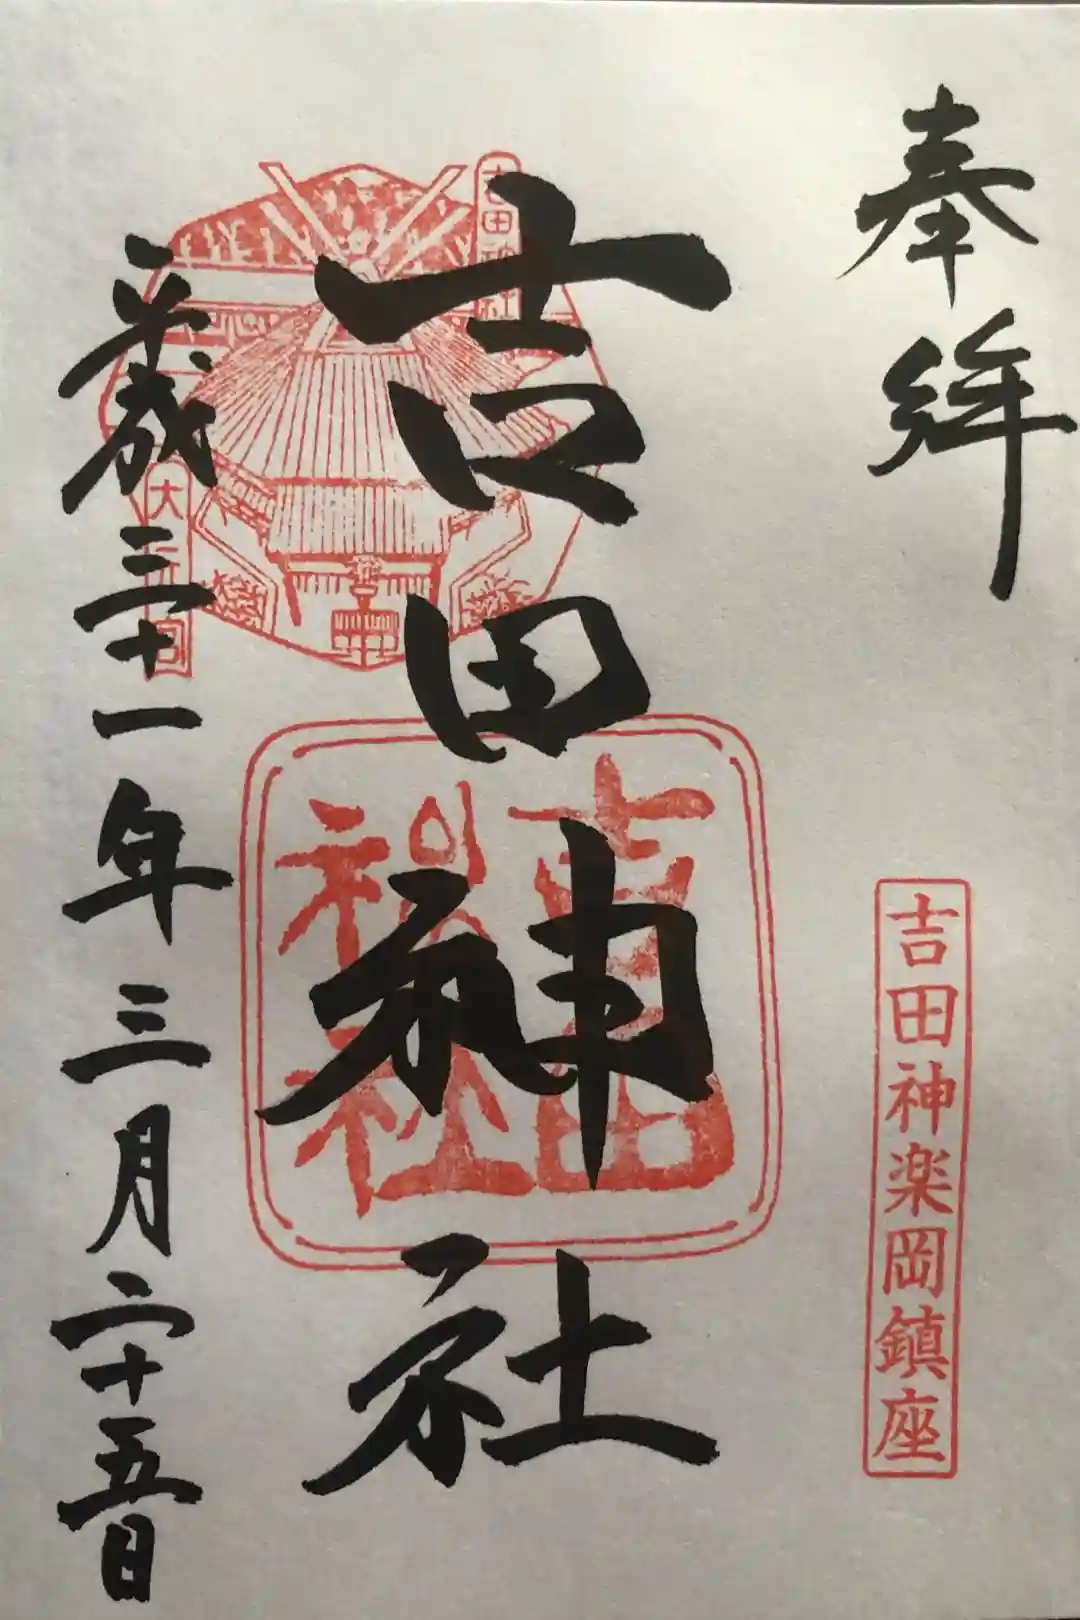 奉拝
吉田神楽岡鎮座
吉田神社
吉田神社
吉田
神社
大元宮
平成三十一年三月二十五日